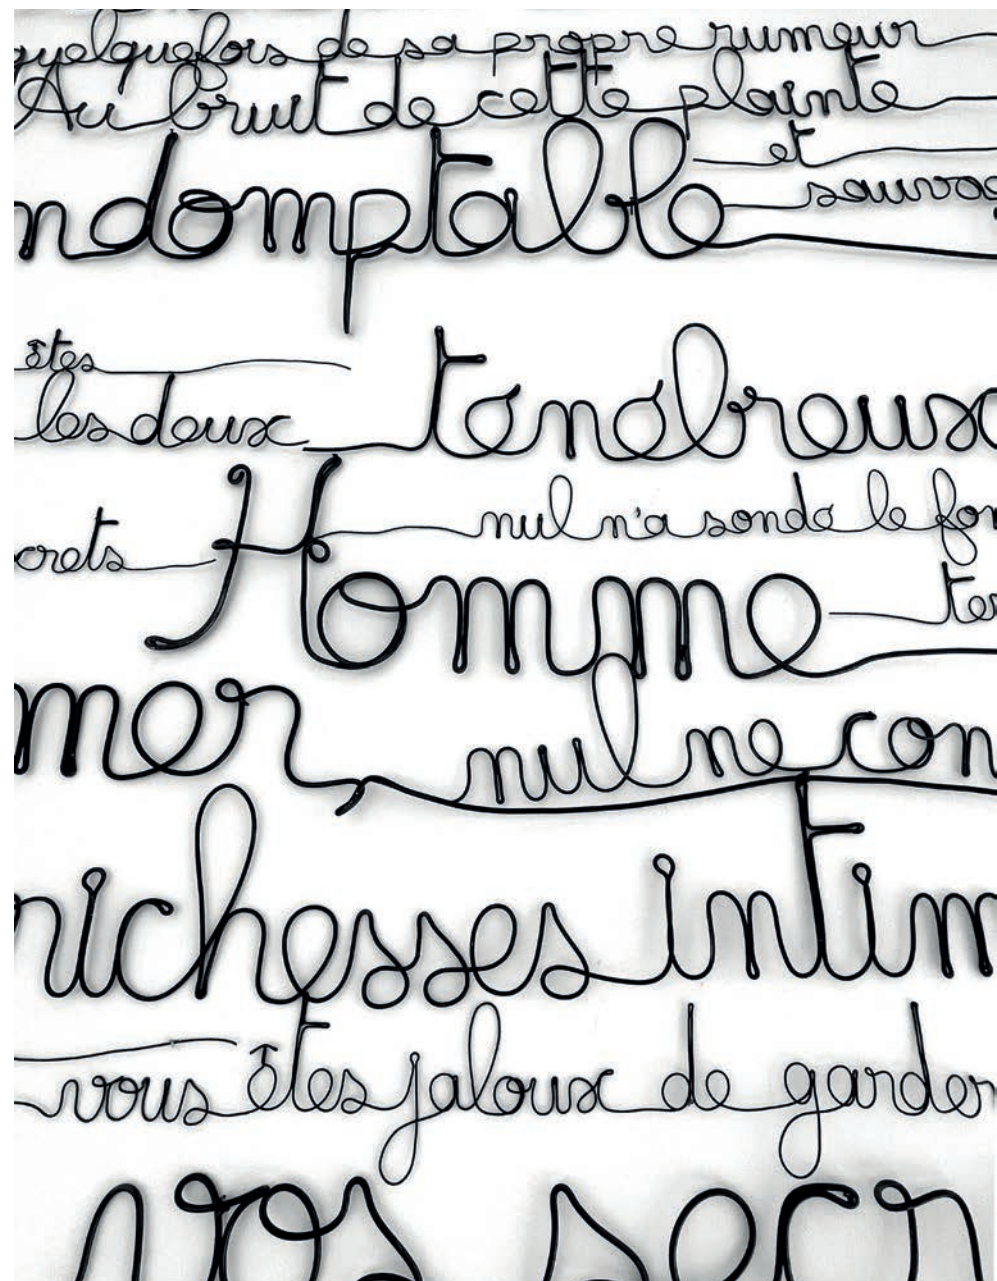 quelquefois de sa propre rumeur
Au bruit de cette plainte
ndomptable et
sauvag
êtes
les deux ténébreux
crets nul n'a sondé le fon
Homme ter
mer, nul ne con
richesses intim
vous êtes jaloux de garder
vos secr